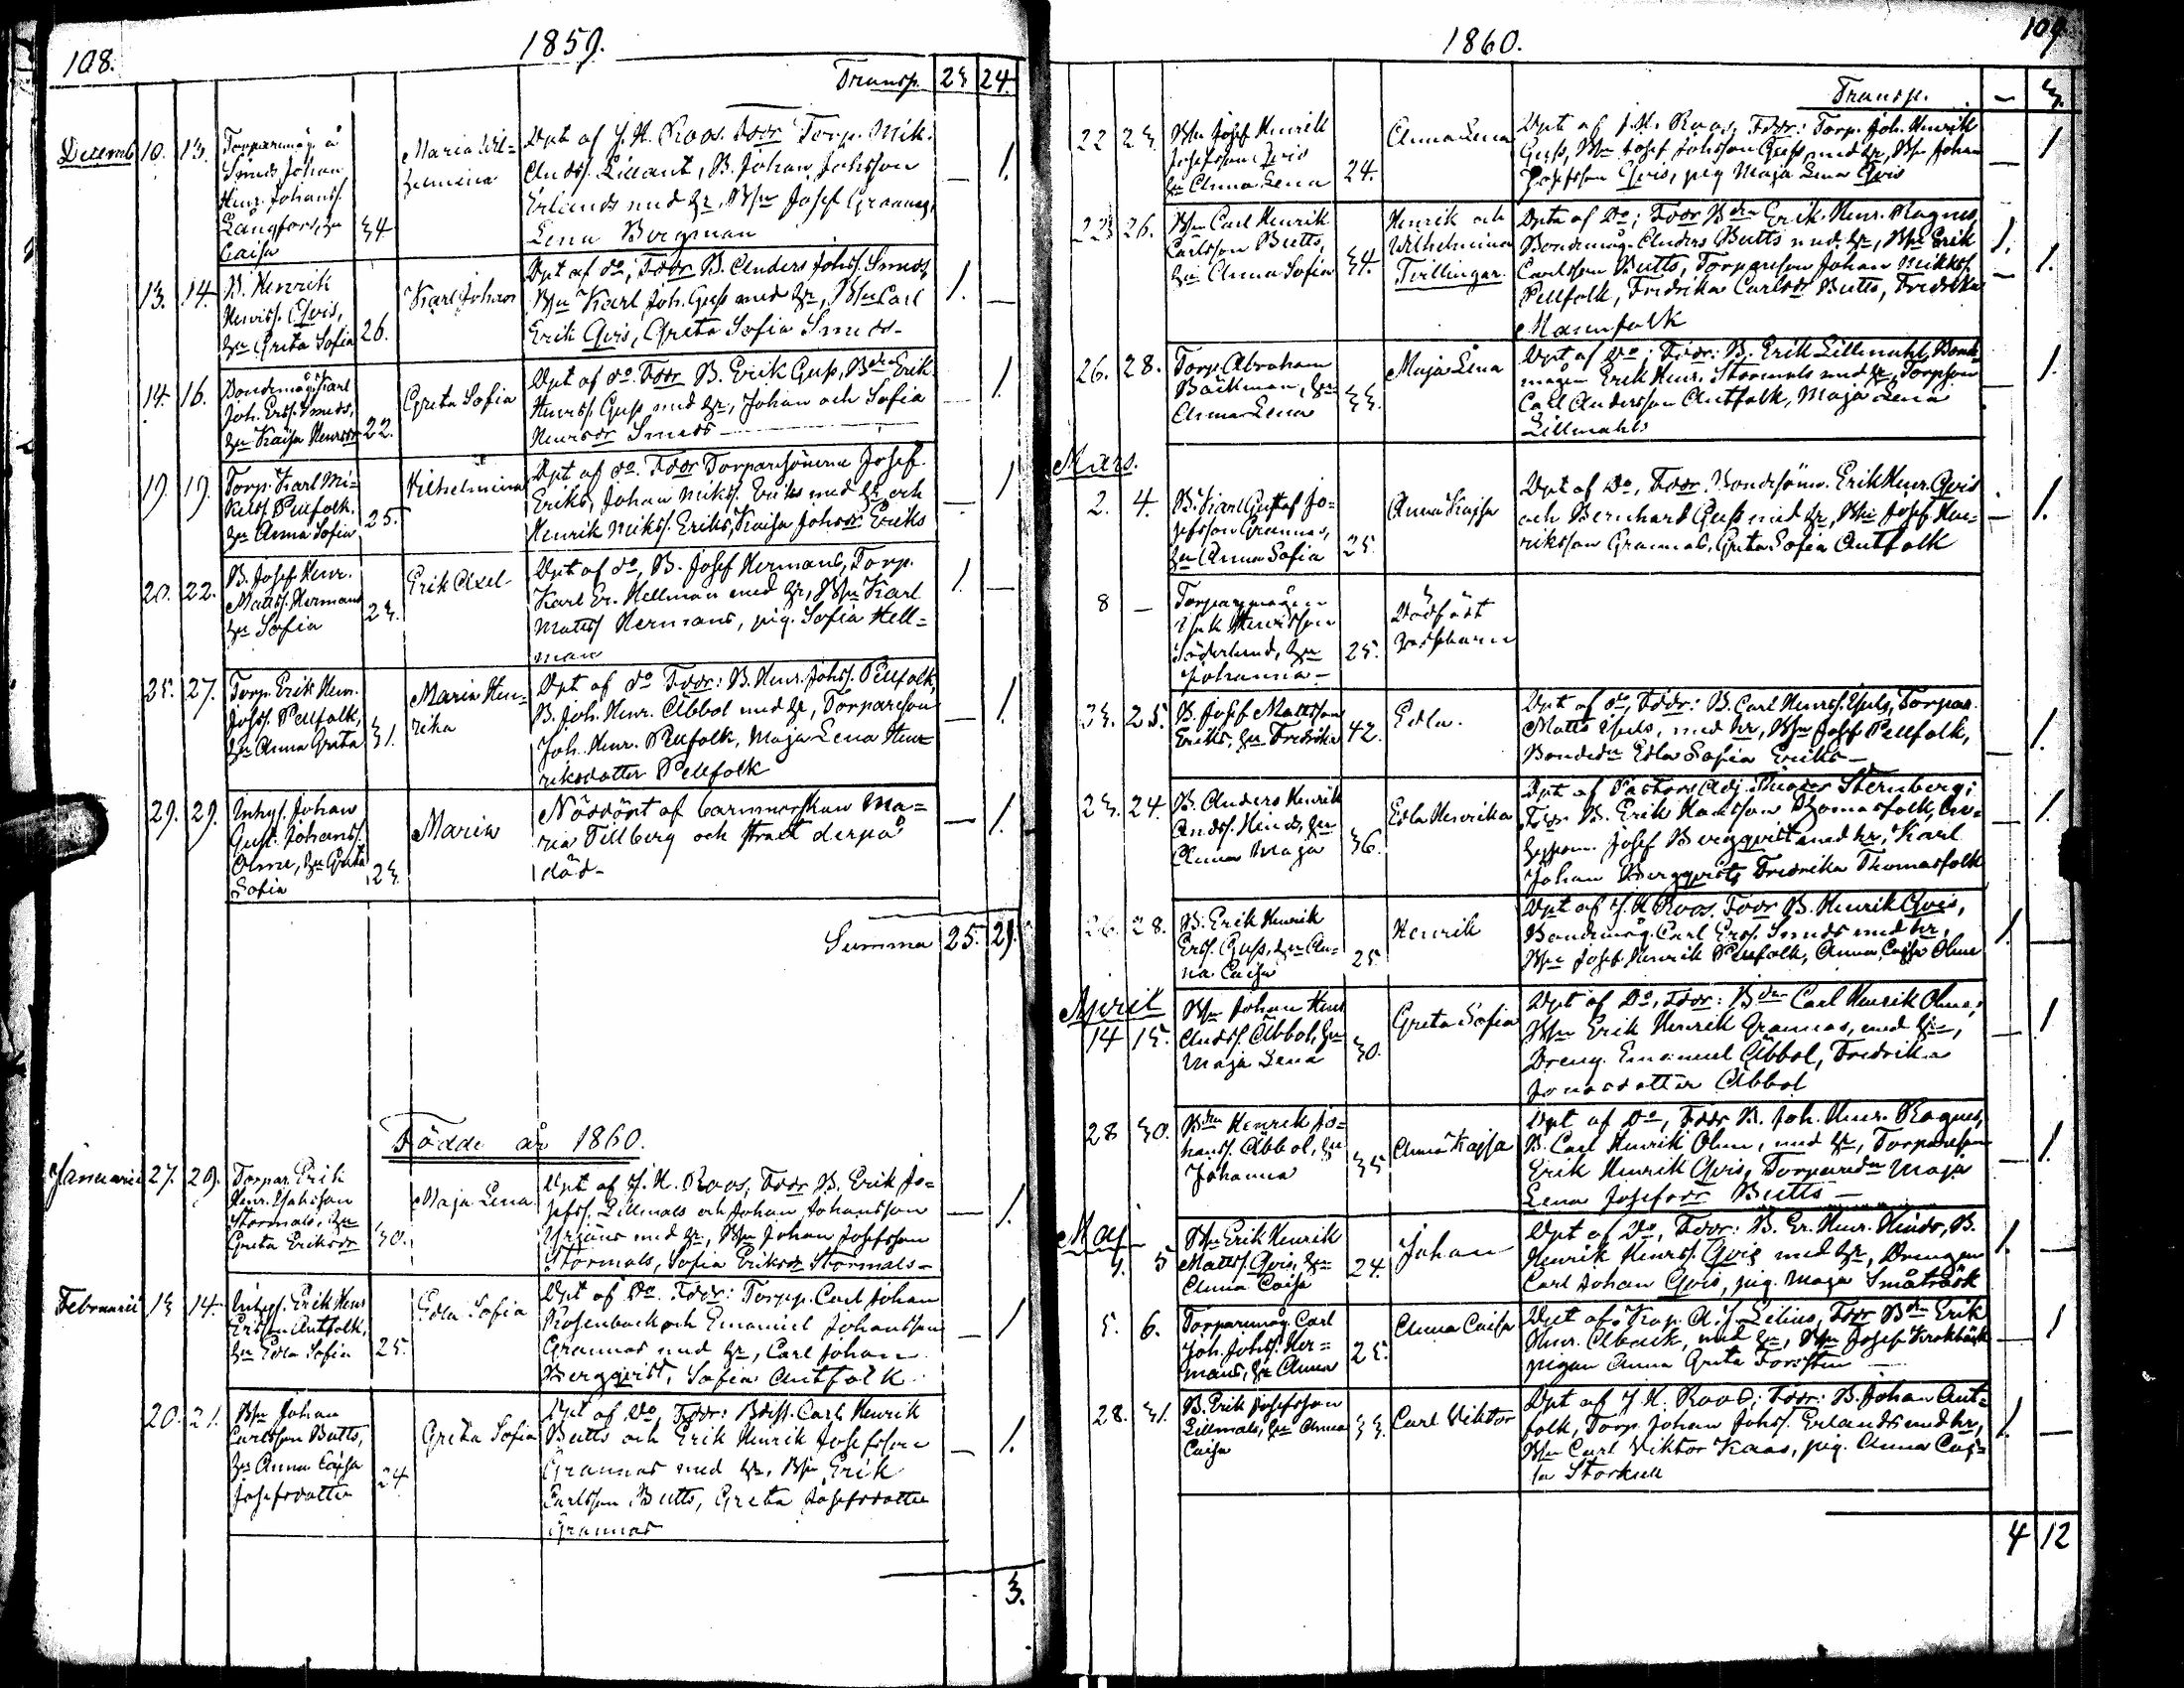 108.
1859.
Transp. 23 24.
Decemb 10. 13. Torparemåg. å
Smeds Johan
Henr. Johanss.
Långfors, hu
Caisa
34
Maria Vil=
helmina
Dpt af J. H. Roos. Fddr Torp. Mik.
Anderss. Lillant, B. Johan Johsson
Erlands med hr, Bsn Josef Grannas,
Lena Bergman
— 1.
13. 14. B. Henrik
Henrss. Qvis,
hu Greta Sofia 26.
Karl Johan
Dpt af do; Fddr B. Anders Johss. Smeds,
Bsn Karl Joh. Guss med hr, Bsn Carl
Erik Qvis, Greta Sofia Smeds-
1. —
14. 16. Bondemåg. Karl
Joh. Erss. Smeds,
hu Kaisa Henrsdr 22.
Greta Sofia
Dpt af do. Fddr B. Erik Guss, Bdn Erik
Henrss. Guss med hr, Johan och Sofia
Henrsdr Smeds
— 1.
19. 19. Torp. Karl Mi=
kelss. Pellfolk.
hu Anna Sofia 25.
Vilhelmina
Dpt af do. Fddr Torparesönerna Josef
Eriks, Johan Mikss. Eriks med hr och
Henrik Mikss. Eriks, Kaisa Johsdr Eriks
— 1
20. 22. B. Josef Henr.
Matss. Hermans
hu Sofia 23.
Erik Axel
Dpt af do, B. Josef Hermans, Torp.
Karl Er. Hellman med hr, Bsn Karl
Matss Hermans, pig. Sofia Hell=
man
1. —
25. 27. Torp. Erik Henr.
Johss. Pellfolk,
hu Anna Greta 31.
Maria Hen=
rika
Dpt af do Fddr: B. Henr. Johss. Pellfolk,
B. Joh. Henr. Åbbol med hr, Torpareson
Joh. Henr. Pellfolk, Maja Lena Hen=
riksdotter Pellfolk
— 1.
29. 29. Inhys. Johan
Gust. Johanss.
Olme, hu Greta
Sofia 23.
Maria
Nöddöpt af barnmorskan Ma=
ria Tillberg och straxt derpå
död-
— 1.
Summa 25. 29.
Födde år 1860.
Januarii 27. 29. Torpar. Erik
Henr. Johsson
Stormals. hu
Greta Eriksdr 30.
Maja Lena
Dpt af J. H. Roos, Fddr B. Erik Jo=
sefss. Lillmals och Johan Johansson
Yrjans med hr, Bsn Johan Josefsson
Stormals, Sofia Eriksdr Stormals-
— 1.
Februarii 13 14. Inhys. Erik Henr
Ersson Antfolk,
hu Edla Sofia 25.
Edla Sofia
Dpt af Do. Fddr: Torpp. Carl Johan
Rosenback och Emanuel Johansson
Grannas med hr, Carl Johan
Bergqvist, Sofia Antfolk.
— 1
20. 21. Bsn Johan
Carlsson Butts,
hu Anna Cajsa
Josefsdotter 24
Greta Sofia
Dpt af Do, Fddr: Bdss. Carl Henrik
Butts och Erik Henrik Josefsson
Grannas med hr, Bsn Erik
Carlsson Butts, Greta Josefsdotter
Grannas
— 1.
3.
109.
1860.
Transp. — 3.
22 23. Bsn Josef Henrik
Josefsson Qvis
hu Anna Lena 24.
Anna Lena
Dpt af J. H. Roos, Fddr: Torp. Joh. Henrik
Guss, Bsn Josef Johsson Guss med hr, Bsn Johan
Josefsson Qvis, pig Maja Lena Qvis
— 1
23 26. Bsn Carl Henrik
Carlsson Butts,
hu Anna Sofia 34.
Henrik och
Wilhelmina
Tvillingar.
Dpta af Do; Fddr Bdn Erik. Henr. Ragnes,
Bondemåg. Anders Butts med. hr, Bsn Erik
Carlsson Butts, Torpareson Johan Mikkss.
Pellfolk, Fredrika Carlsdr Butts, Fredrika
Masenfolk
1. — 1.
26. 28. Torp. Abraham
Bäckman, hu
Anna Lena 33.
Maja Lena
Dpt af Do; Fddr: B. Erik Lillmahl, Bonde
mågen Erik Henr. Stormals med hr, Torpson
Carl Andersson Antfolk, Maja Lena
Lillmahls
— 1.
Mars.
2. 4. B. Karl Gustaf Jo=
sefsson Grannas,
hu Anna Sofia 25.
Anna Kajsa
Dpt af Do, Fddr. Bondsöner. Erik Henr. Qvis
och Bernhard Guss med hr, Bsn Josef Hen=
riksson Grannas, Greta Sofia Antfolk
— 1.
8 — Torparemågen
Isak Henrisson
Söderlund, hu
Johanna- 25.
Dödfödt
gossbarn
23. 25. B. Josef Mattsson
Eriks, hu Fredrika 42.
Edla.
Dpt af do, Fddr: B. Carl Henrss. Juls, Torpar.
Matts Juls, med hr, Bsn Josef Pellfolk,
Bondedr Edla Sofia Eriks-
— 1.
23. 24. B. Anders Henrik
Andss. Hinds, hu
Anna Maja 36.
Edla Henrika
Dpt af Pastors Adj. Theodor Sternberg;
Fddr B. Erik Hansson Thomasfolk, In=
hysem. Josef Bergqvist med hr, Karl
Johan Bergqvist, Fredrika Thomasfolk
— 1.
26. 28. B. Erik Henrik
Erss. Guss, hu An=
na Caisa 25
Henrik
Dpt af J. H Roos. Fddr B. Henrik Qvis,
Bondemåg. Carl Erss. Smeds med hr,
Bsn Josef Henrik Pellfolk, Anna Cajsa Olme
1. —
April
14 15. Bsn Johan Henr
Andss. Åbbol, hu
Maja Lena 30.
Greta Sofia
Dpt af Do, Fddr: Bdn Carl Henrik Olme,
Bsn Erik Henrik Grannas, med hr,
Dreng. Emanuel Åbbol, Fredrika
Jonasdotter Åbbol
— 1
28 30. Bdn Henrik Jo=
hanss. Åbbol, hu
Johanna 35
Anna Kajsa
Dpt af Do, Fddr B. Joh. Henr. Ragnes,
B. Carl Henrik Olme, med hr, Torpareson
Erik Henrik Qvis, Torparedr Maja
Lena Josefsdr Butts —
— 1.
Maj
4. 5 Bsn Erik Henrik
Mattss. Qvis, hu
Anna Caisa 24.
Johan
Dpt af Do, Fddr: B. Er. Henr. Hinds, B.
Henrik Henrss. Qvis med hr, Drengen
Carl Johan Qvis, pig. Maja Småträsk
1. —
5. 6. Torparemåg Carl
Joh. Johss. Her=
mans, hu Anna 25.
Anna Caisa
Dpt af Kap. A. J Lilius, Fddr Bdn Erik
Henr. Abrik, med hr, Bsn Josef Krokbäck
pigan Anna Greta Forsten —
— 1
28. 31. B. Erik Josefsson
Lillmals, hu Anna
Caisa 33.
Carl Viktor
Dpt af J. H. Roos; Fddr: B. Johan Ant=
folk, Torp. Johan Johss. Erlands med hr,
Bsn Carl Viktor Kaas, pig. Anna Caj=
sa Storkull
1. —
4 12